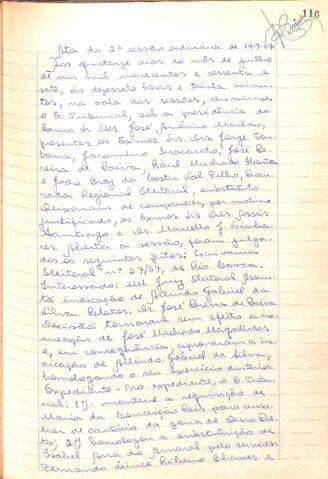 116
Ata da 2ª sessão ordinária de 14-7-67.
Aos quatorze dias do mês de julho
de um mil novecentos e sessenta e
sete, às dezessete horas e trinta minu-
tos, na sala das sessões, reuniu-se
o E. Tribunal, sob a presidência do
Exmo. Sr. Des. José Américo Macêdo,
presentes os Exmos. Srs. Drs. Jorge Fon-
tana, Jacomino Inacarato, José Pe-
reira de Paiva, Raul Machado Horta
e João Braz da Costa Val Filho, Procu-
rador Regional Eleitoral, substituto.
Deixaram de comparecer, por motivo
justificado, os Exmos. Srs. Des. Assis
Santiago e Dr. Marcello J. Linha-
res. Aberta a sessão, foram julga-
dos os seguintes feitos: Escrivania
Eleitoral n.º 27/67, de Rio Casca.
Interessado: MM. Juiz Eleitoral. Assun-
to: indicação de Arlindo Gabriel da
Silva. Relator: Dr. José Pereira de Paiva.
Decisão: tornaram sem efeito a no-
meação de José Machado Magalhães
e, em conseqüência, aprovaram a in-
dicação de Arlindo Gabriel da Silva,
homologando o seu exercício anterior.
Expediente - No expediente, o E. Tribu-
nal: 1º) manteve a requisição de
Maria da Conceição Reis para auxi-
liar do cartório da zona de Ouro Pre-
to; 2º) homologou a substituição de
Isabel do Amaral pelo servidor
Fernando Ribeiro Chaves e